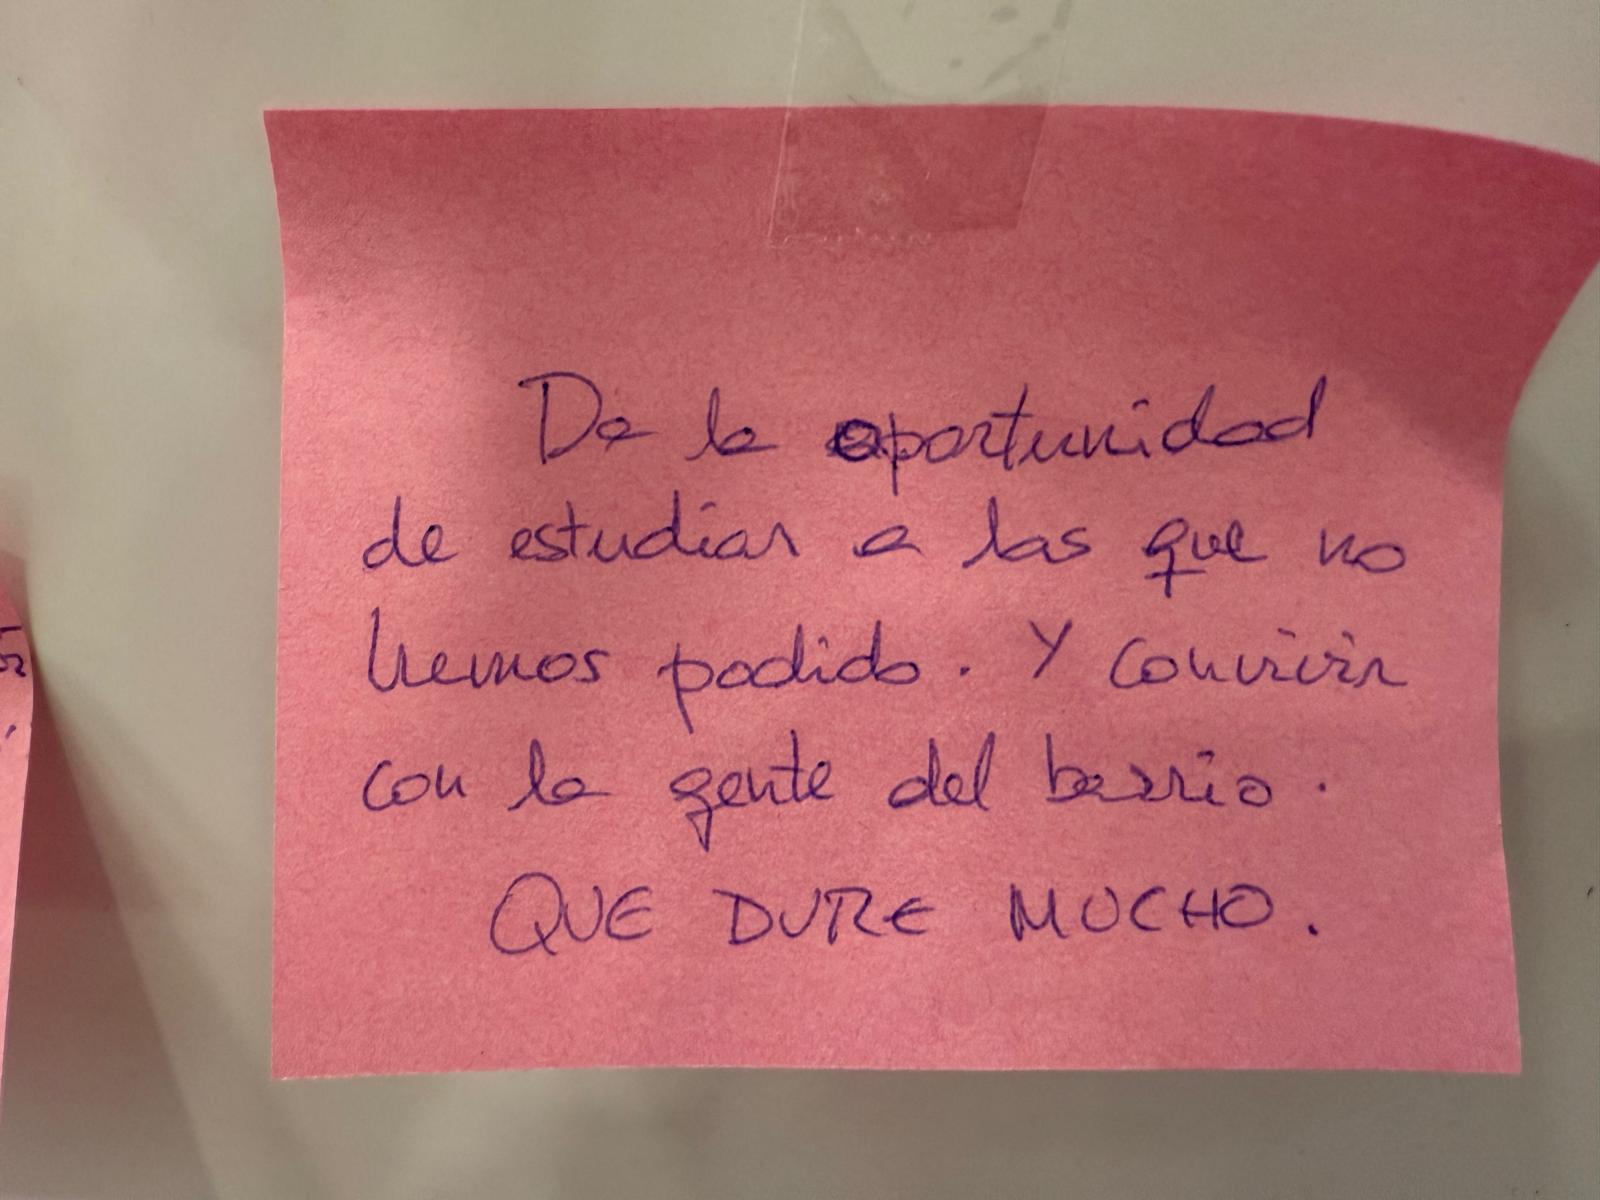 Da la oportunidad
de estudiar a las que no
hemos podido. Y convivir
con la gente del barrio.
QUE DURE MUCHO.